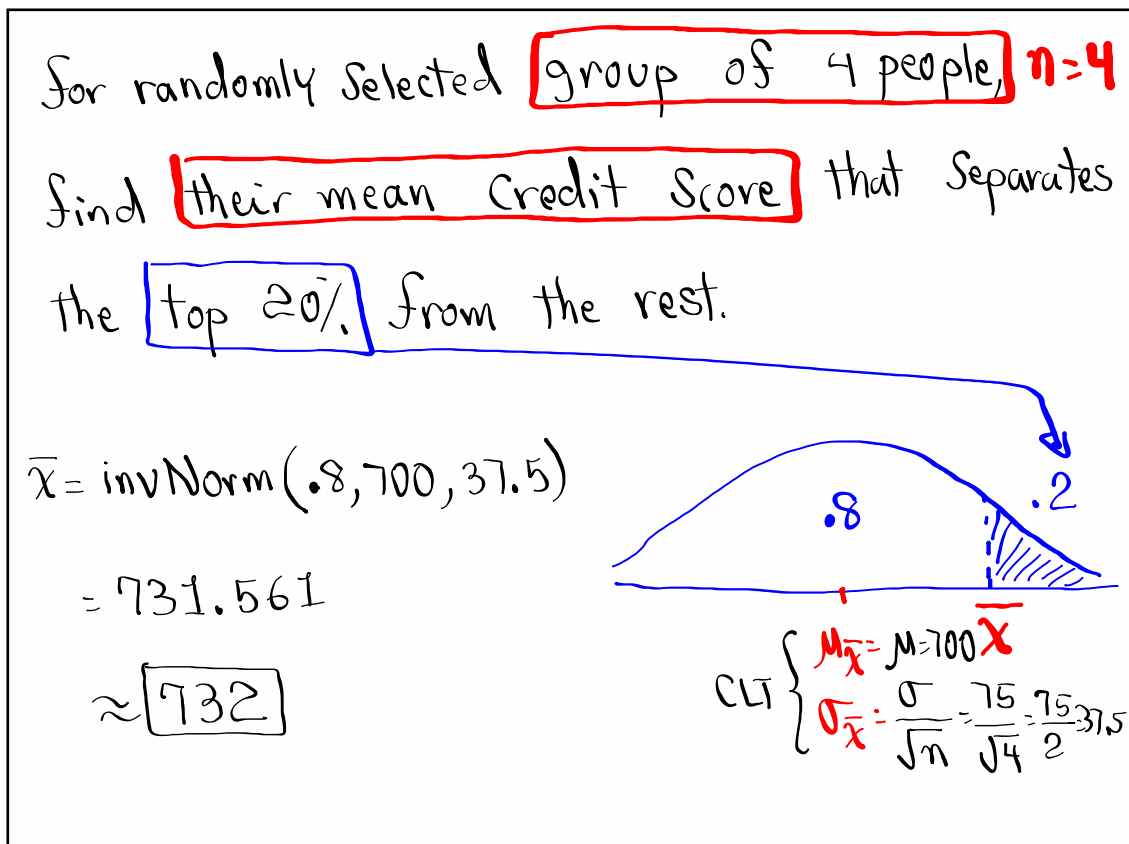 for randomly selected group of 4 people, n=4
find their mean Credit Score that separates
the top 20% from the rest.
x̄ = invNorm(.8,700,37.5)
.8
.2
= 731.561
≈ 732
x̄
CLT { μx̄ = μ=700
σx̄ = σ/√n = 75/√4 = 75/2 = 37.5